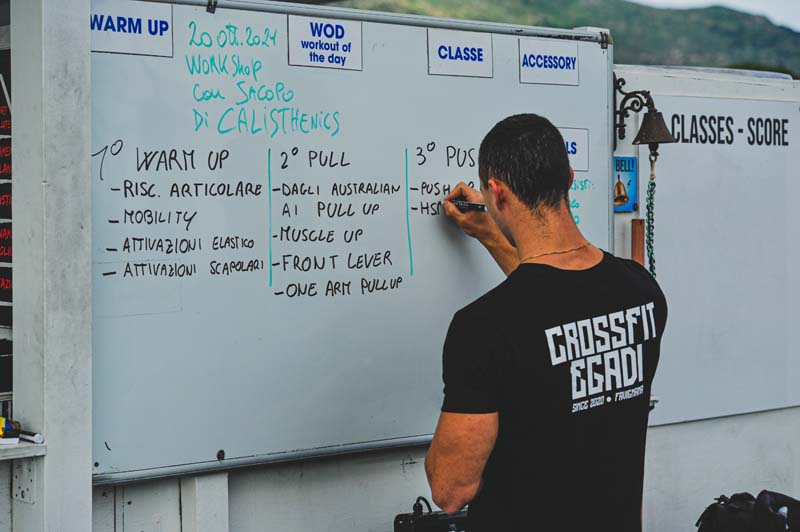 WARM UP
WOD
workout of
the day
CLASSE
ACCESSORY
20 Ott. 2024
WORKShop
con SACOPO
Di CALISTHENICS
1° WARM UP
- RISC. ARTICOLARE
- MOBILITY
- ATTIVAZIONI ELASTICO
- ATTIVAZIONI SCAPOLARI
2° PULL
- DAGLI AUSTRALIAN
AI PULL UP
- MUSCLE UP
- FRONT LEVER
- ONE ARM PULL UP
3° PUS
- PUSH
- HS
CLASSES - SCORE
BELL!
CROSSFIT
EGADI
SINCE 2020 • FAVIGNANA